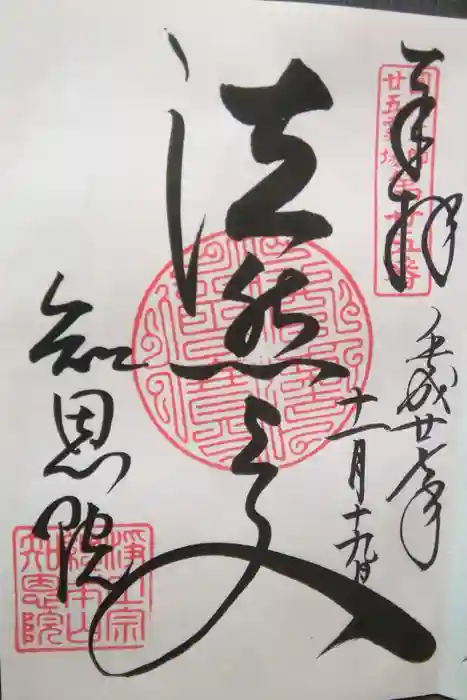 奉拝
圓光大師
廿五霊場第廿五番
平成廿七年
十一月十九日
法然上人
知恩院
浄土宗
総本山
知恩院